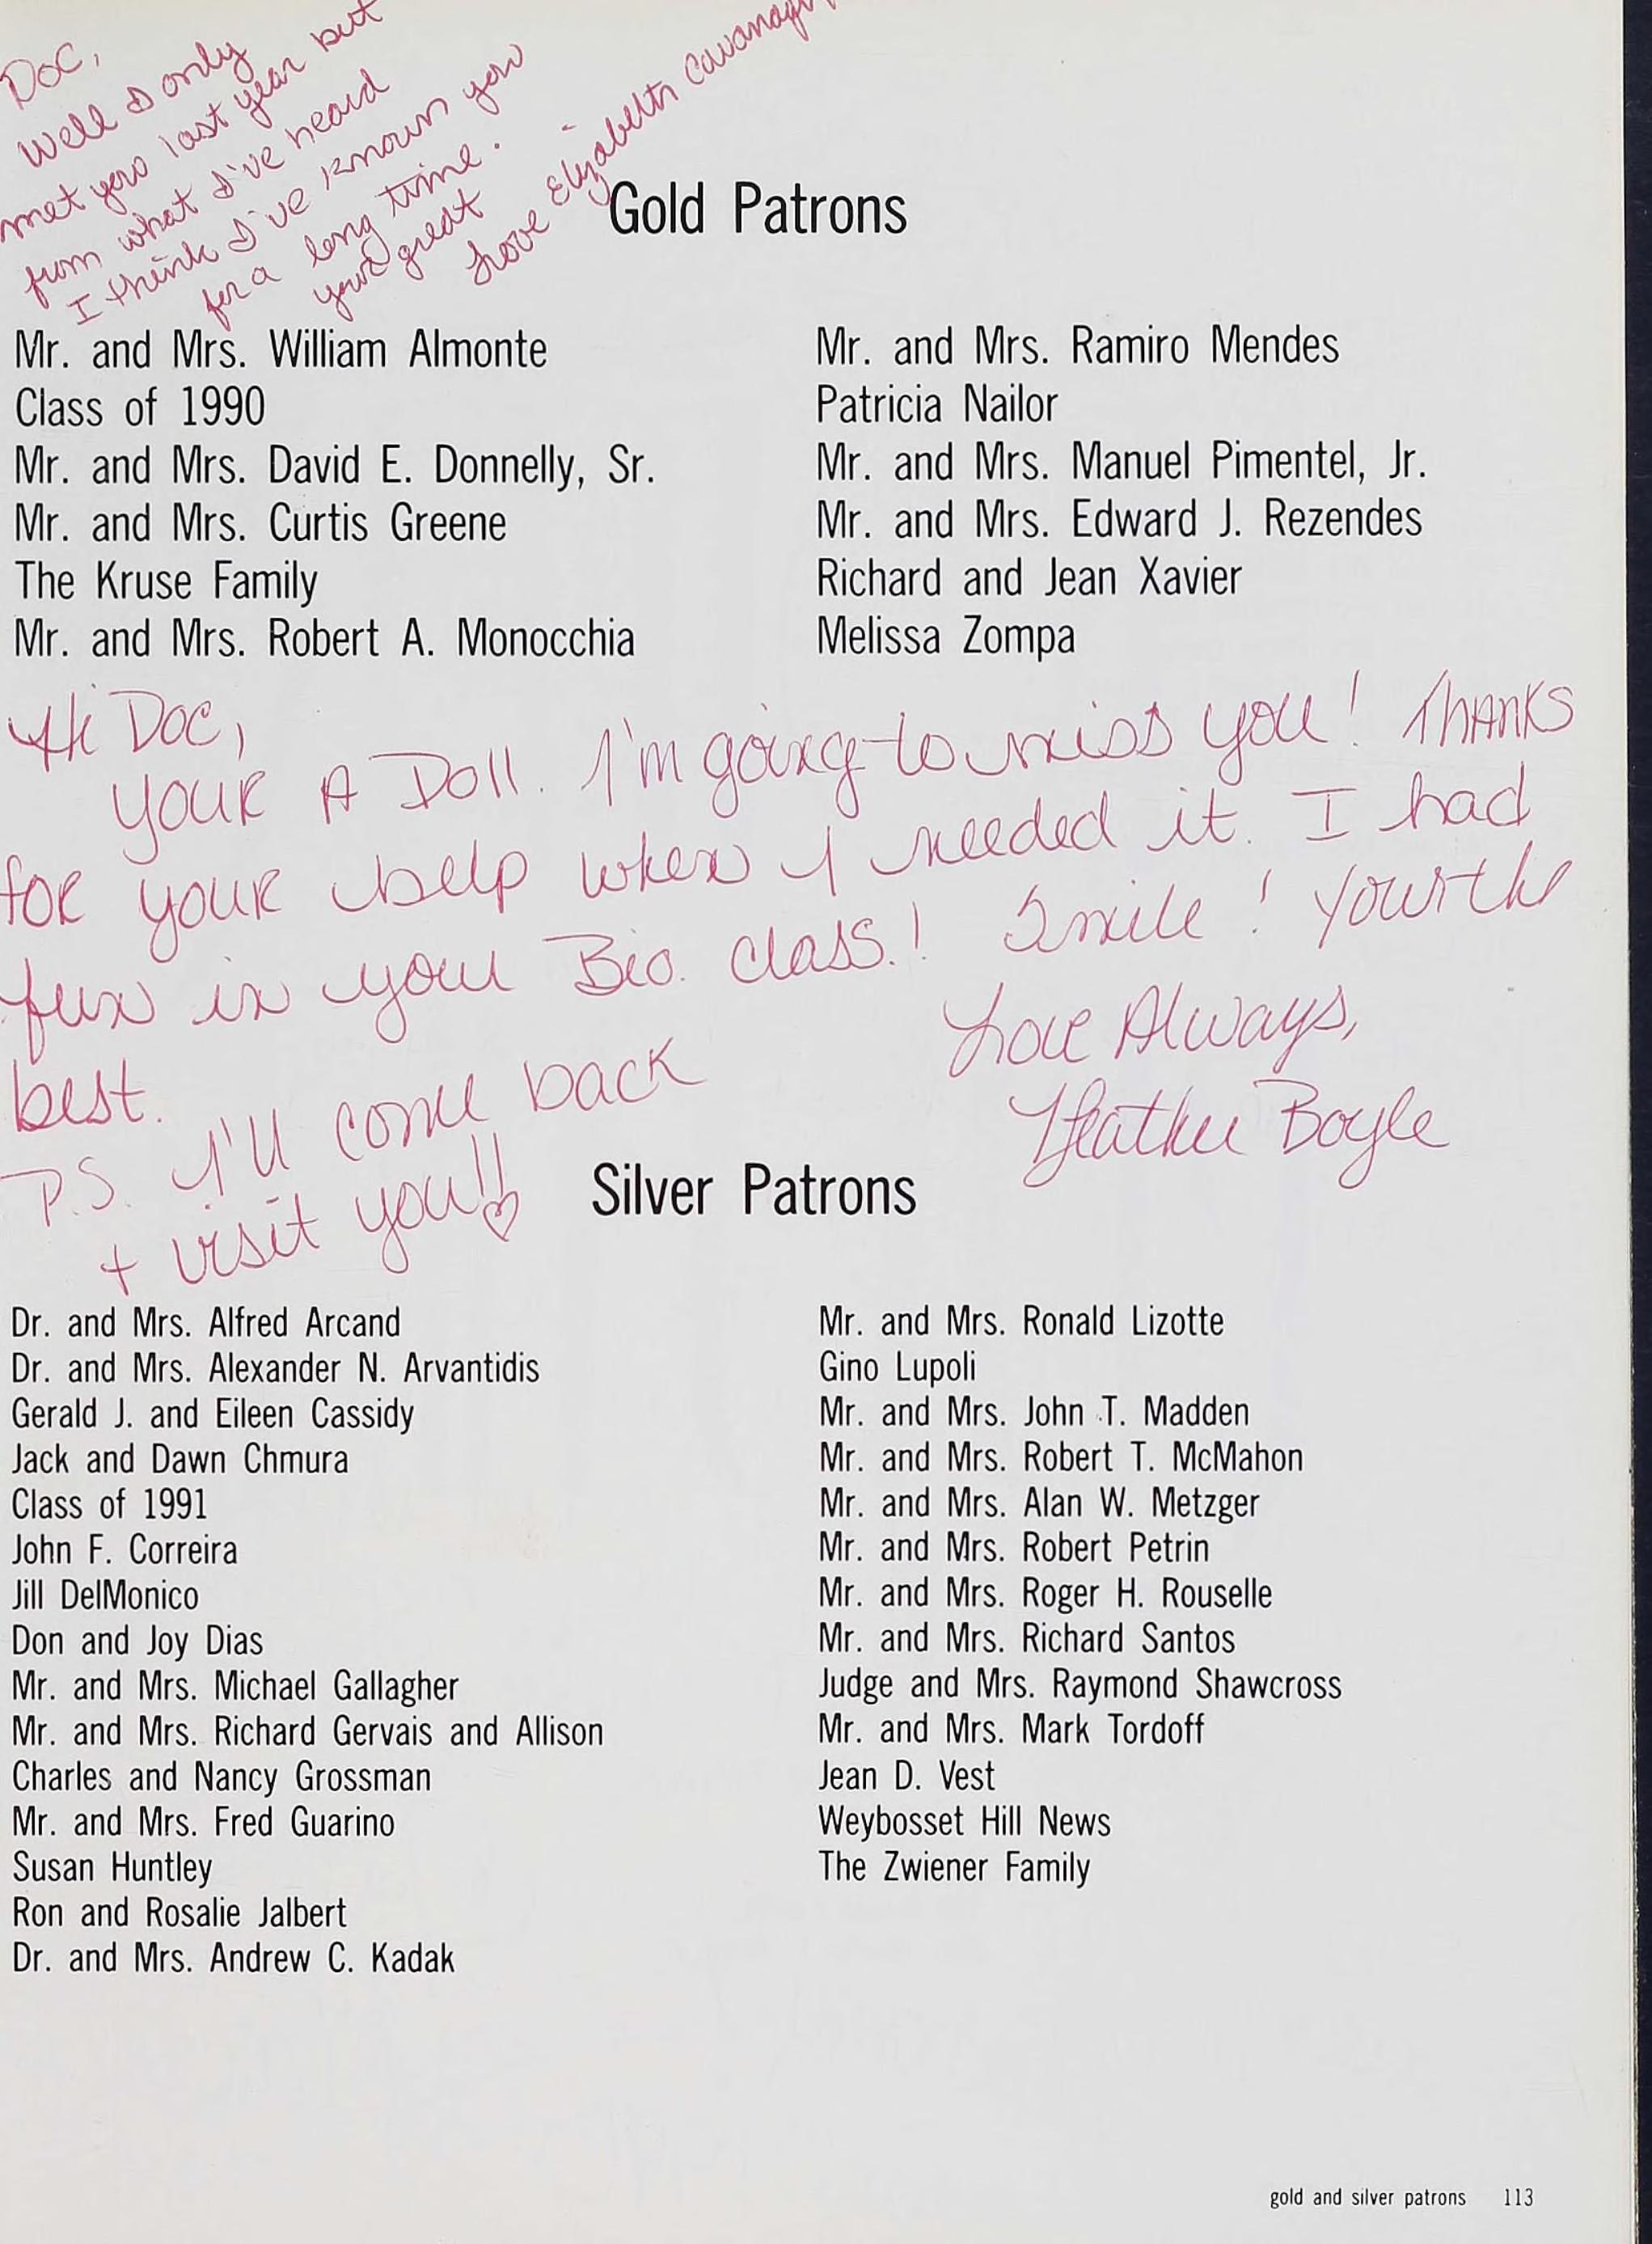 Doc,
Well I only
met you last year but
from what I've heard
I think I've known you
for a long time.
your great
Love Elizabeth Cavanagh
Gold Patrons
Mr. and Mrs. William Almonte
Class of 1990
Mr. and Mrs. David E. Donnelly, Sr.
Mr. and Mrs. Curtis Greene
The Kruse Family
Mr. and Mrs. Robert A. Monocchia
Mr. and Mrs. Ramiro Mendes
Patricia Nailor
Mr. and Mrs. Manuel Pimentel, Jr.
Mr. and Mrs. Edward J. Rezendes
Richard and Jean Xavier
Melissa Zompa
Hi Doc,
Your A Doll. I'm going to miss you! Thanks
for your help when I needed it. I had
fun in your Bio. class.! Smile! Your the
best.
Love Always,
Heather Boyle
P.S. I'll come back
+ visit you!!
Silver Patrons
Dr. and Mrs. Alfred Arcand
Dr. and Mrs. Alexander N. Arvantidis
Gerald J. and Eileen Cassidy
Jack and Dawn Chmura
Class of 1991
John F. Correira
Jill DelMonico
Don and Joy Dias
Mr. and Mrs. Michael Gallagher
Mr. and Mrs. Richard Gervais and Allison
Charles and Nancy Grossman
Mr. and Mrs. Fred Guarino
Susan Huntley
Ron and Rosalie Jalbert
Dr. and Mrs. Andrew C. Kadak
Mr. and Mrs. Ronald Lizotte
Gino Lupoli
Mr. and Mrs. John T. Madden
Mr. and Mrs. Robert T. McMahon
Mr. and Mrs. Alan W. Metzger
Mr. and Mrs. Robert Petrin
Mr. and Mrs. Roger H. Rouselle
Mr. and Mrs. Richard Santos
Judge and Mrs. Raymond Shawcross
Mr. and Mrs. Mark Tordoff
Jean D. Vest
Weybosset Hill News
The Zwiener Family
gold and silver patrons 113